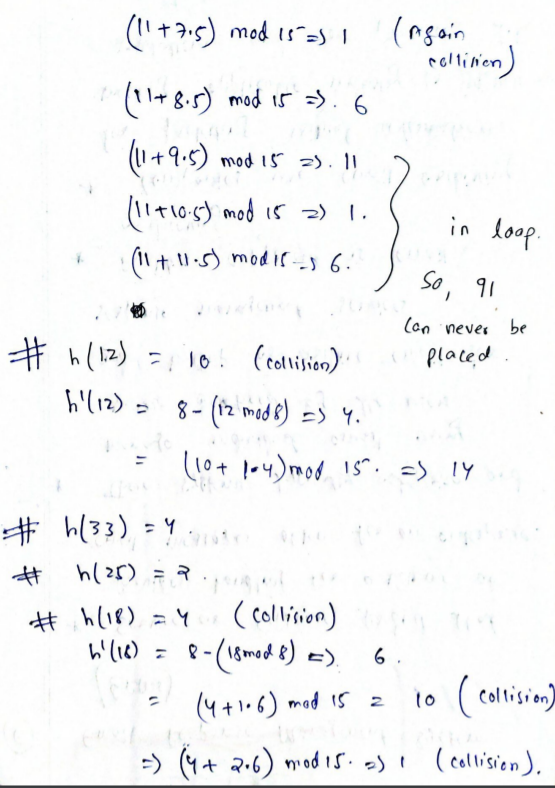 (11+7.5) mod 15 => 1 (Again collision)
(11+8.5) mod 15 => . 6
(11+9.5) mod 15 => . 11
(11+10.5) mod 15 => 1.
(11+11.5) mod 15 => 6.
in loop.
So, 91
can never be
placed.
# h(12) = 10. (collision)
h'(12) = 8-(12 mod 8) => 4.
= (10+1.4) mod 15. => 14
# h(33) = 4.
# h(25) = 2.
# h(18) = 4 (collision)
h'(18) = 8-(18 mod 8) => 6.
= (4+1.6) mod 15 = 10 (collision)
=> (4+2.6) mod 15. => 1 (collision).